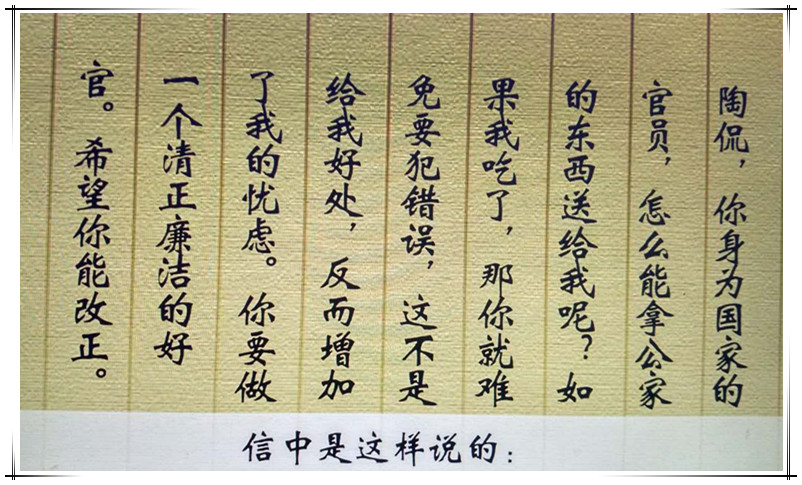 陶侃，你身为国家的
官员，怎么能拿公家
的东西送给我呢？如
果我吃了，那你就难
免要犯错误，这不是
给我好处，反而增加
了我的忧虑。你要做
一个清正廉洁的好
官。希望你能改正。
信中是这样说的：